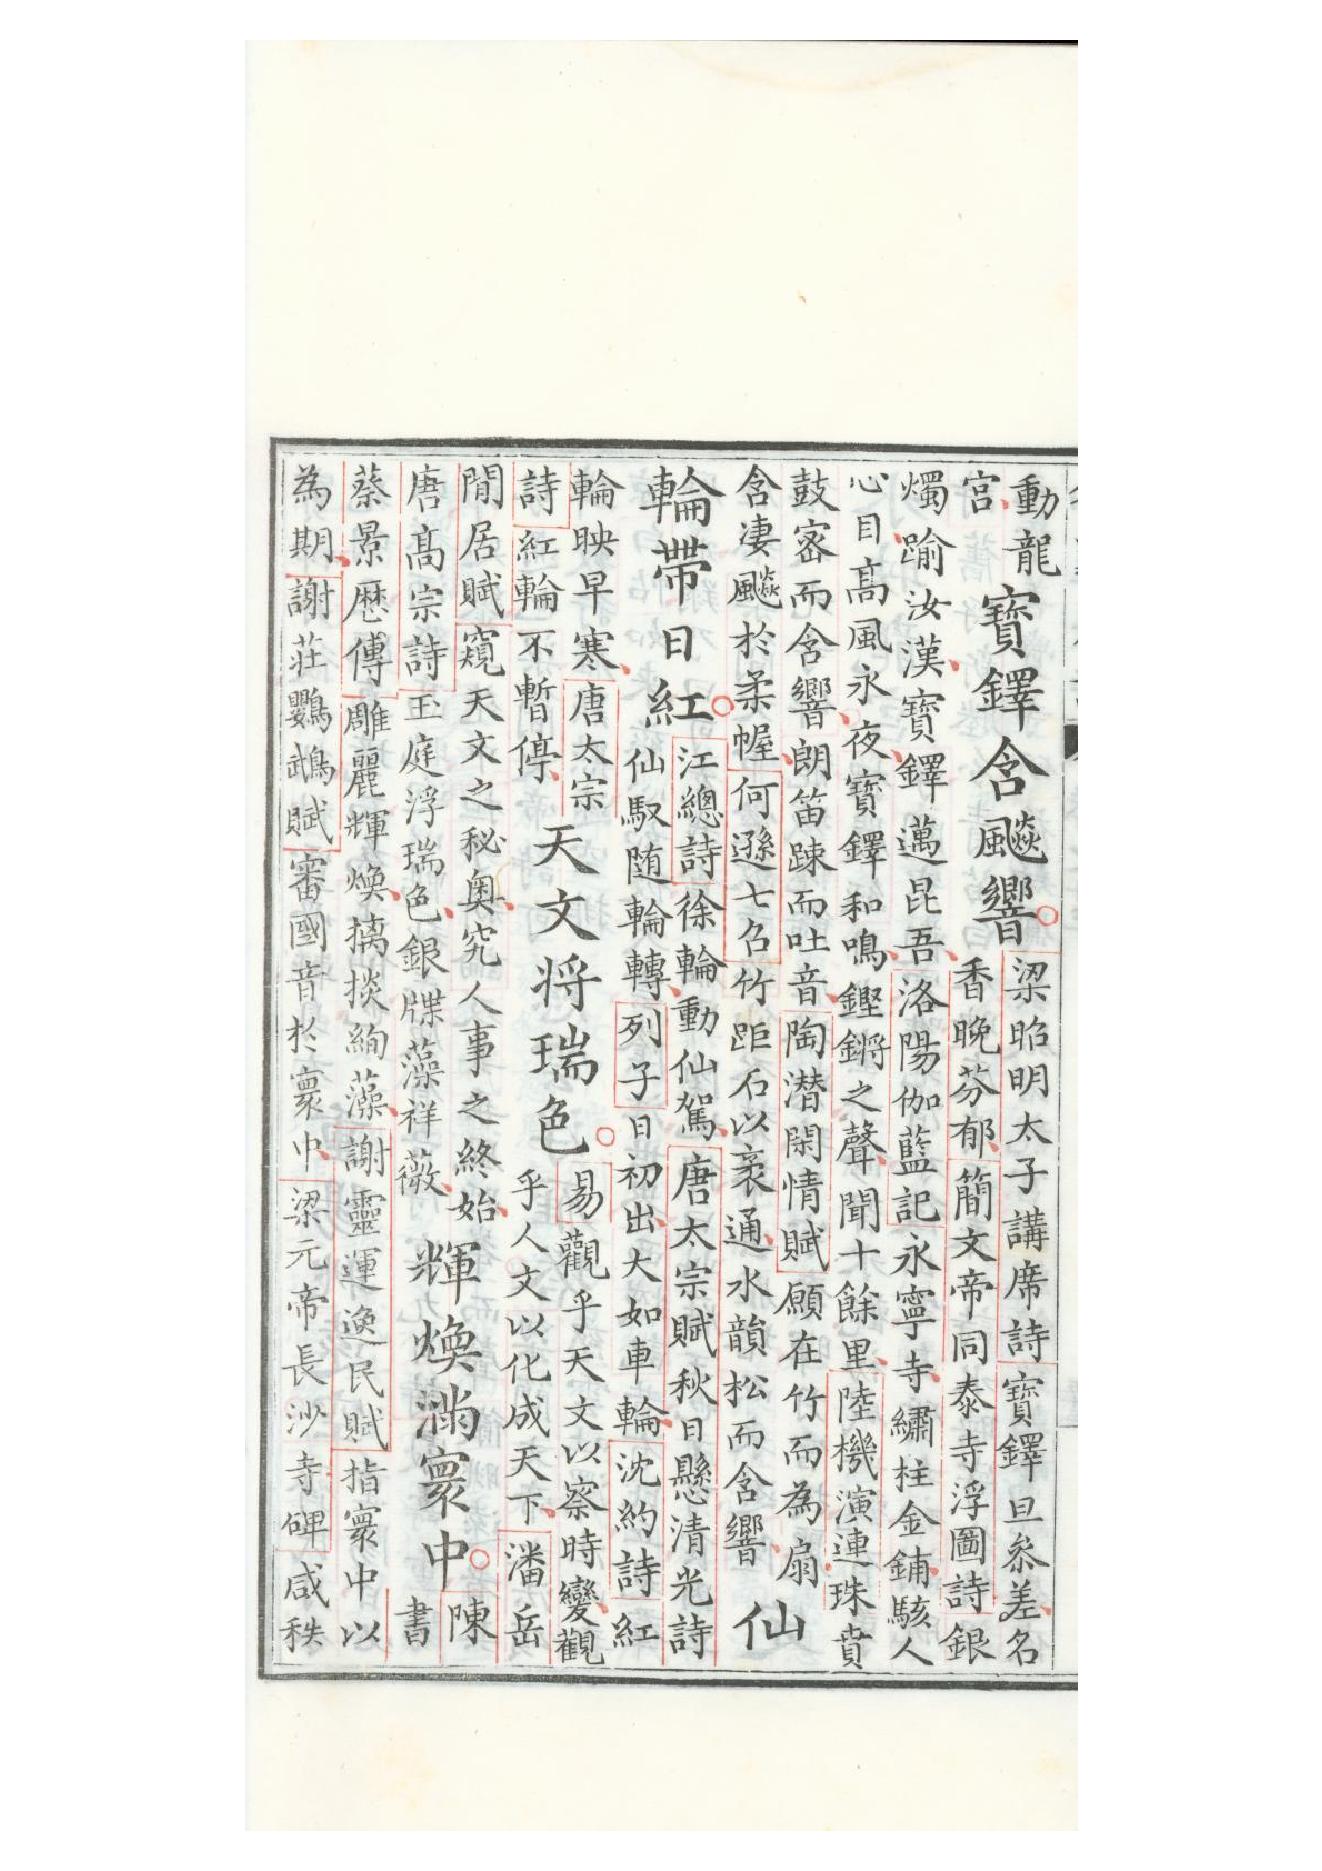 動龍
宮
寶鐸含飈響
梁昭明太子講席詩寶鐸旦叅差名
香晚芬郁簡文帝同泰寺浮圖詩銀
燭踰汝漢寶鐸邁昆吾洛陽伽藍記永寧寺繡柱金鋪駭人
心目髙風永夜寶鐸和鳴鏗鏘之聲聞十餘里陸機演連珠賁
鼓宻而含響朗笛踈而吐音陶潜閑情賦願在竹而為扇
含凄飈於柔幄何遜七召竹距石以裛通水韻松而含響
仙
輪帶日紅
江總詩徐輪動仙駕唐太宗賦秋日懸清光詩
仙馭随輪轉列子日初出大如車輪沈約詩紅
輪映早寒唐太宗
詩紅輪不暫停
天文将瑞色
易觀乎天文以察時變觀
乎人文以化成天下潘岳
閒居賦窺天文之秘奥究人事之終始
唐髙宗詩玉庭浮瑞色銀牒藻祥薇
輝煥滿寰中
陳
書
蔡景厯傳雕麗輝煥摛掞絢藻謝靈運逸民賦指寰中以
為期謝莊鸚鵡賦審國音於寰中梁元帝長沙寺碑咸秩